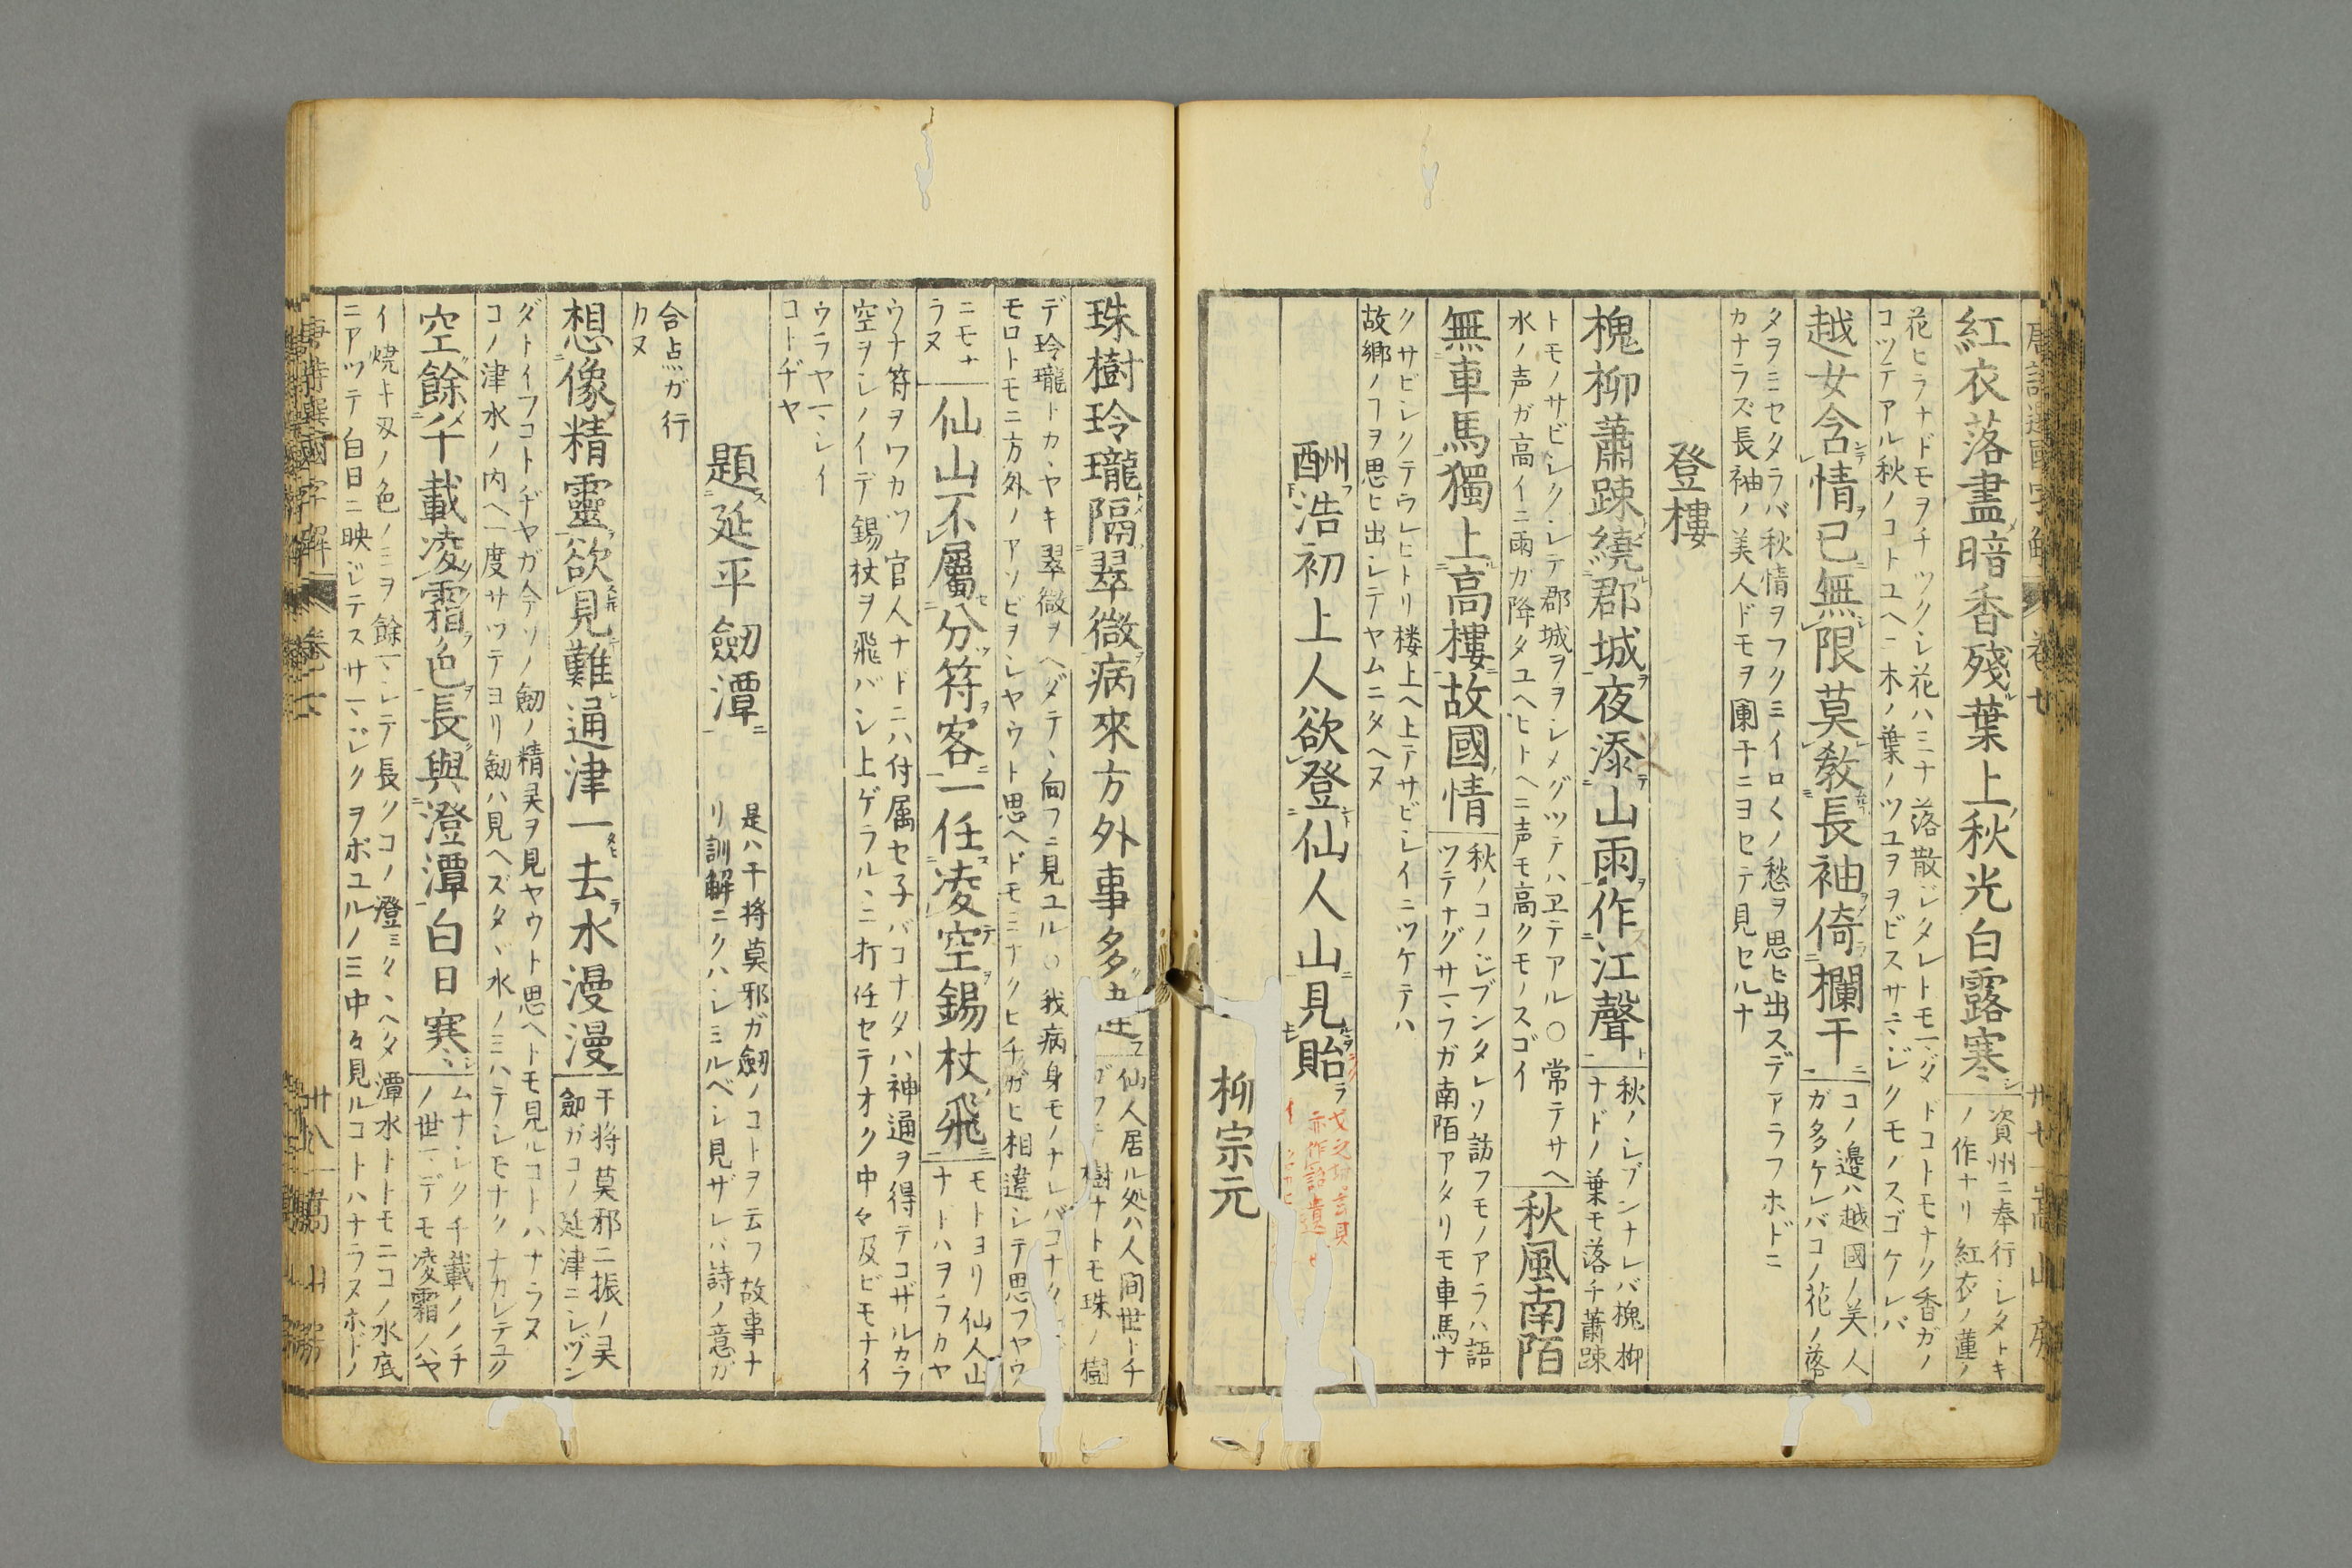 紅衣落盡暗香殘葉上秋光白露寒
資州ニ奉行シタトキ
ノ作ナリ紅衣ノ蓮ノ
花ヒラナドモヲチツクシ花ハミナ落散ジタレトモマダドコトモナク香ガノ
コツテアル秋ノコトユヘニ木ノ葉ノツユヲヲビスサマジクモノスゴケレバ
越女含情已無限莫教長袖倚欄干
コノ邊ハ越國ノ美人
ガ多ケレバコノ花ノ落
タヲミセタラバ秋情ヲフクミイロ〱ノ愁ヲ思ヒ出スデアラフホドニ
カナラズ長袖ノ美人ドモヲ闌干ニヨセテ見セルナ
登樓
槐柳蕭踈繞郡城夜添山雨作江聲
秋ノシブンナレバ槐柳
ナドノ葉モ落チ蕭踈
トモノサビシクシテ郡城ヲヲシメグツテハヱテアル○常テサヘ
水ノ声ガ高イニ雨ガ降タユヘヒトヘニ声モ高クモノスゴイ
秋風南陌
無車馬獨上高樓故國情
秋ノコノジブンタレソ訪フモノアラハ語
ツテナグサマフガ南陌アタリモ車馬ナ
クサビシクテウレヒトリ楼上ヘ上テサビシイニツケテハ
故郷ノフヲ思ヒ出シテヤムニタヘヌ
酬浩初上人欲登仙人山見貽
柳宗元
珠樹玲瓏隔翠微病來方外事多
仙人居ル処ハ人間世トチ
樹ナトモ珠ノ樹
デ玲瓏トカヽヤキ翠微ヲヘダテヽ向フニ見ユル○我病身モノナレバコナタ
モロトモニ方外ノアソビヲシヤウト思ヘドモミナクヒチガヒ相違シテ思フヤウ
ニモナ
ラヌ
仙山不屬分符客一任凌空錫杖飛
モトヨリ仙人山
ナトハヲラカヤ
ウナ符ヲワカツ官人ナドニハ付属セ子バコナタハ神通ヲ得テコザルカラ
空ヲシノイデ錫杖ヲ飛バシ上ゲラルヽニ打任セテオク中々及ビモナイ
ウラヤマシイ
コトヂヤ
題延平劔潭
是ハ干將莫邪ガ劔ノコトヲ云フ故事ナ
リ訓解ニクハシミルベシ見ザレバ詩ノ意ガ
合点ガ行
カヌ
想像精靈欲見難通津一去水漫漫
干將莫邪二振ノ㚑
劔ガコノ延津ニシヅン
ダトイフコトヂヤガ今ソノ劔ノ精㚑ヲ見ヤウト思ヘトモ見ルコトハナラヌ
コノ津水ノ内ヘ一度サツテヨリ劔ハ見ヘズタヾ水ノミハテシモナクナカレテユク
空餘千載凌霜色長與澄潭白日寒
ムナシク千載ノノチ
ノ世マデモ凌霜ノハヤ
イ焼キ刄ノ色ノミヲ餘マシテ長クコノ澄ミタヽヘタ潭水トトモニコノ水底
ニアツテ白日ニ映ジテスサマジクヲボユルノミ中々見ルコトハナラヌホドノ
唐詩選國字解